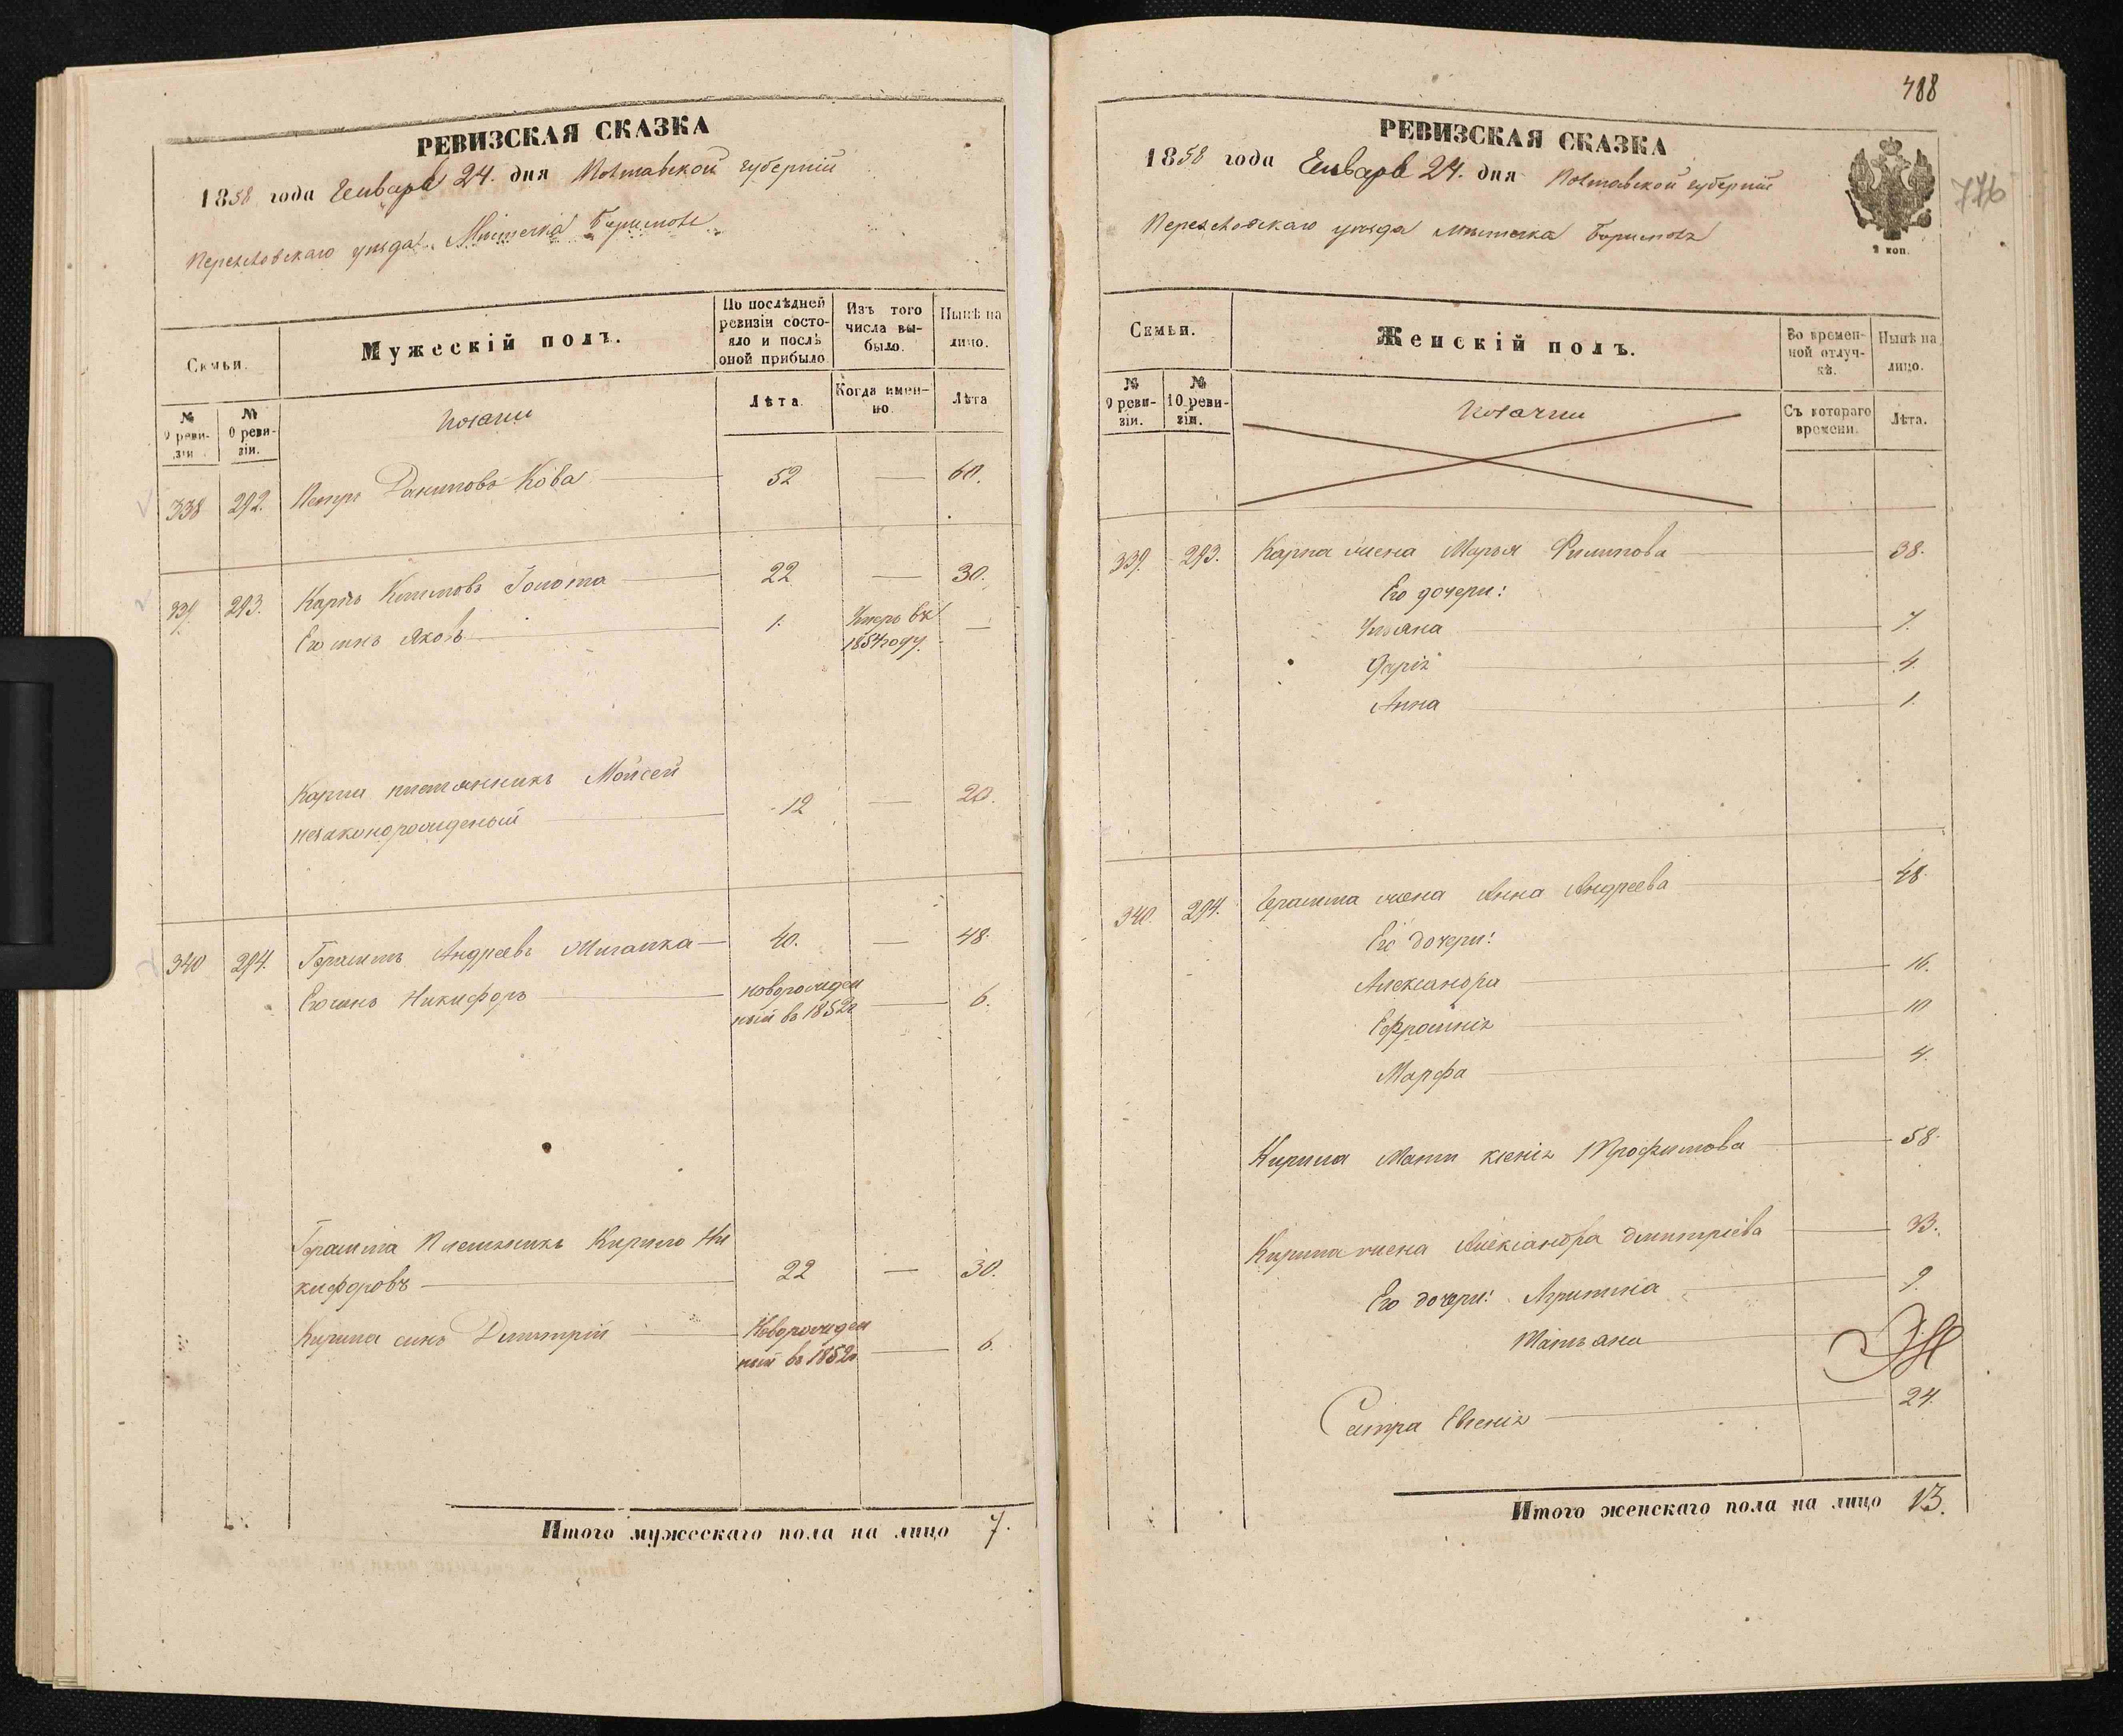 РЕВИЗСКАЯ СКАЗКА
1858 года Генваря 24. дня Полтавской губерніи
Переяславскаго уѣзда Мѣстечка Барышполя
Семьи.
Мужескій полъ.
По послѣдней ревизіи состояло и послѣ оной прибыло
Изъ того числа выбыло.
Нынѣ на лицо.
№ 9 ревизіи
№ 10 ревизіи.
Козаки
Лѣта
Когда именно.
Лѣта
338 292. Петръ Даниловъ Кова 52 — 60.
339. 293. Карпъ Климовъ Голота 22 — 30.
Его сынъ Яковъ 1. Умеръ въ 1854 году. —
Карпа племянникъ Мойсей
незаконорожденый 12 — 20.
340 294. Герасимъ Андреевъ 40. — 48.
Его сынъ Никифоръ новорожден
ный въ 1852г — 6.
Герасима Племянникъ Кирило Ни
кифоровъ 22 — 30.
Кирила сынъ Димитрій Новорожден
ный въ 1852г — 6.
Итого мужескаго пола на лицо 7.
488
776
РЕВИЗСКАЯ СКАЗКА
1858 года Генваря 24. дня Полтавской губерніи
Переяславскаго уѣзда мѣстечка Барышполя
2 коп.
Семьи.
Женскій полъ.
Во временной отлучкѣ.
Нынѣ на лицо.
№ 9 ревизіи.
№ 10 ревизіи.
Козачки
Съ котораго времени.
Лѣта.
339. 293. Карпа жена Марья Филипова 38.
Его дочери:
Ульяна 7.
4.
Анна 1.
340. 294. Герасима жена Анна Андреева 48
Его дочери:
Александра 16.
Ефросинія 10
Марфа 4.
Кирила Мати Ксенія Трофимова 58.
Кирила жена Александра Димитріева 33.
Его дочери: Агрипина 9.
Татьана
Сестра Евгенія 24.
Итого женскаго пола на лицо 13.